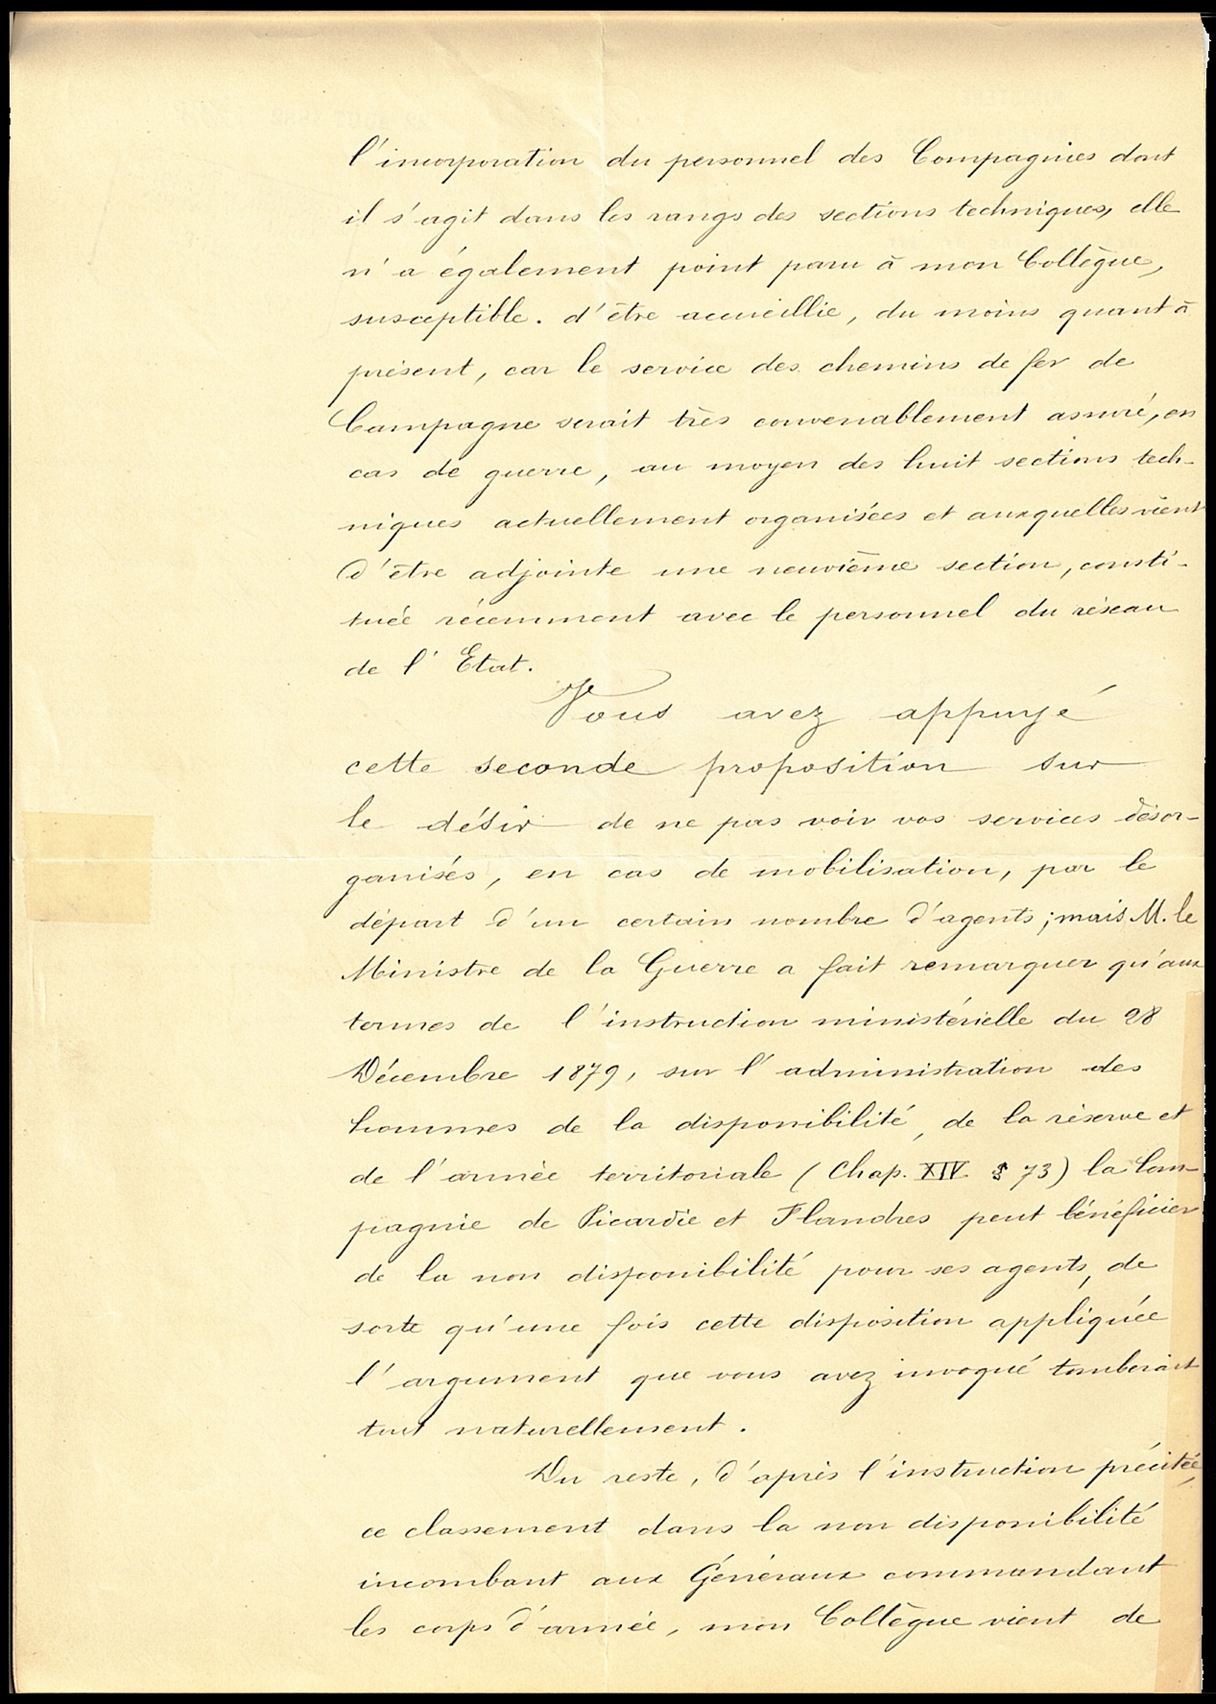 l'incorporation du personnel des Compagnies dont
il s'agit dans les rangs des sections techniques, elle
n'a également point paru à mon Collègue,
susceptible. d'être accueillie, du moins quant à
présent, car le service des chemins de fer de
Campagne serait très convenablement assuré, en
cas de guerre, au moyen des huit sections tech-
niques actuellement organisées et auxquelles vient
d'être adjointe une neuvième section, consti-
tuée récemment avec le personnel du réseau
de l'Etat.
Vous avez appuyé
cette seconde proposition sur
le désir de ne pas voir vos services désor-
ganisés, en cas de mobilisation, par le
départ d'un certain nombre d'agents ; mais M. le
Ministre de la Guerre a fait remarquer qu'aux
termes de l'instruction ministérielle du 28
Décembre 1879, sur l'administration des
hommes de la disponibilité, de la réserve et
de l'armée territoriale (Chap. XIV § 73) la Com-
pagnie de Picardie et Flandres peut bénéficier
de la non disponibilité pour ses agents, de
sorte qu'une fois cette disposition appliquée
l'argument que vous avez invoqué tomberait
tout naturellement.
Du reste, d'après l'instruction précitée,
ce classement dans la non disponibilité
incombant aux Généraux commandant
les corps d'armée, mon Collègue vient de